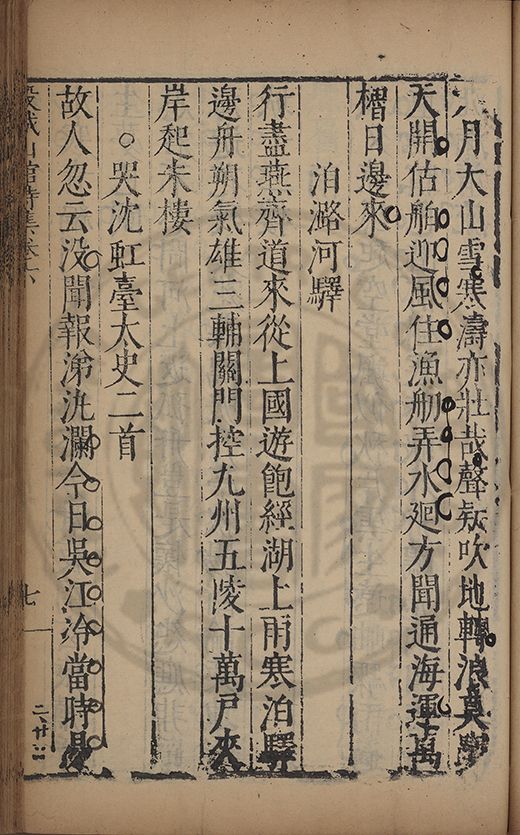 月大山雪寒濤亦壯哉聲疑吹地轉浪真
天開估舶迎風住漁舠弄水廻方聞通海運萬
櫓日邊來
泊潞河驛
行盡燕齊道來從上國遊飽經湖上雨寒泊驛
邊舟朔氣雄三輔關門控九州五陵十萬戶夾
岸起朱樓
哭沈虹臺太史二首
故人忽云没聞報涕汍瀾今日吳江冷當時
城山館詩集卷六
七